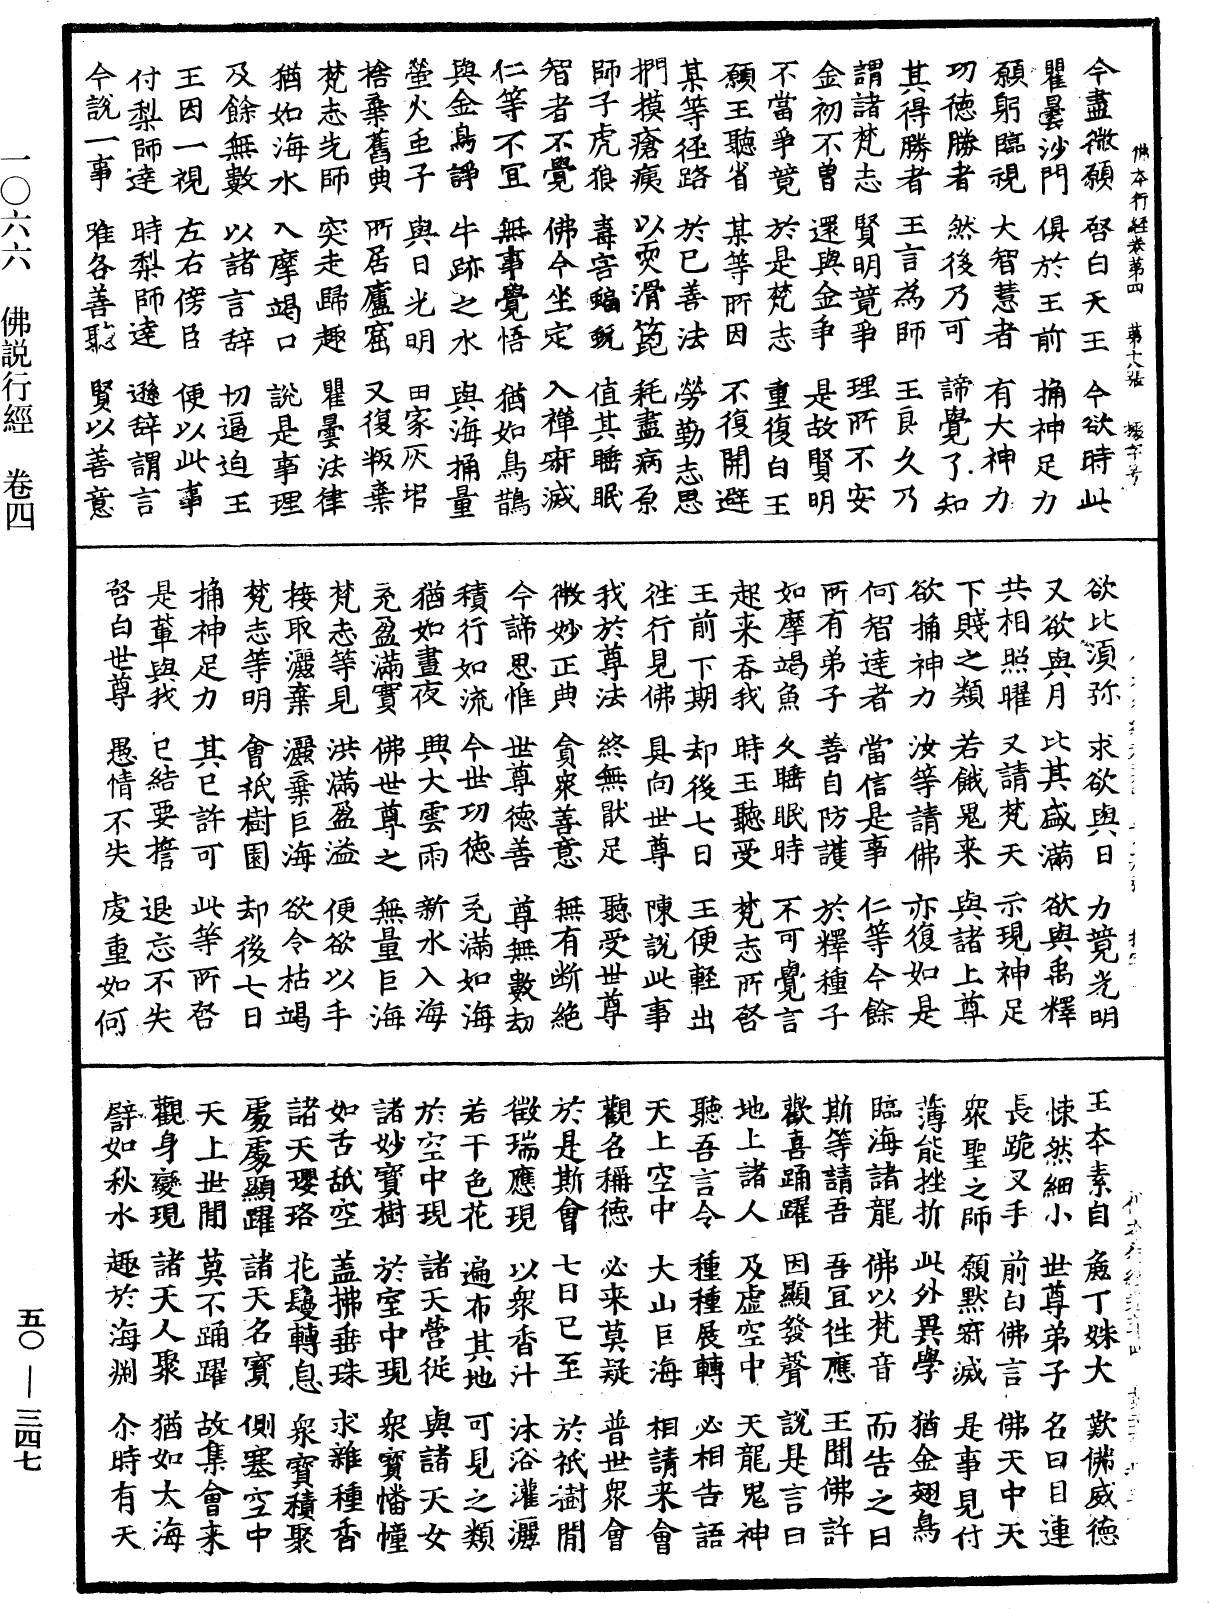 一〇六六 佛説行經 卷四
五〇—三四七
佛本行經卷第四 第十八張
今盡微願 啓白天王 今欲時此
瞿曇沙門 俱於王前 捔神足力
願躬臨視 大智慧者 有大神力
功德勝者 然後乃可 諦覺了知
其得勝者 王言為師 王良久乃
謂諸梵志 賢明競爭 理所不安
金初不曾 還與金爭 是故賢明
不當爭競 於是梵志 重復白王
願王聽省 某等所因 不復開避
某等徑路 於已善法 勞勤志思
捫摸瘡痍 以耎滑篦 耗盡病原
師子虎狼 毒害蝮蚖 值其睡眠
智者不覺 佛今坐定 入禪寂滅
仁等不宜 無事覺悟 猶如烏鵲
與金鳥諍 牛跡之水 與海捔量
螢火虫子 與日光明 田家灰坩
捨棄舊典 所居廬窟 又復叛棄
梵志先師 突走歸趣 瞿曇法律
猶如海水 入摩竭口 說是事理
及餘無數 以諸言辭 切逼迫王
王因一視 左右傍臣 便以此事
付梨師達 時梨師達 遜辭謂言
今說一事 唯各善聽 賢以善意
欲比須弥 求欲與日 力競光明
又欲與月 比其盛滿 欲與禹釋
共相照曜 又請梵天 示現神足
下賤之類 若餓鬼來 與諸上尊
欲捔神力 汝等請佛 亦復如是
何智達者 當信是事 仁等今餘
所有弟子 善自防護 於釋種子
如摩竭魚 久睡眠時 不可覺言
起來吞我 時王聽受 梵志所啓
王前下期 却後七日 王便輕出
往行見佛 具向世尊 陳說此事
我於尊法 終無厭足 聽受世尊
微妙正典 貪眾善意 無有断絕
今諦思惟 世尊德善 尊無數劫
積行如流 今世功德 充滿如海
猶如晝夜 興大雲雨 新水入海
充盈滿實 佛世尊之 無量巨海
梵志等見 洪滿盈溢 便欲以手
接取灑棄 灑棄巨海 欲令枯竭
梵志等明 會祇樹園 却後七日
捔神足力 其已許可 此等所啓
是輩與我 已結要擔 退忘不失
啓白世尊 愚情不失 虔重如何
王本素自 麁丁姝大 歎佛威德
悚然細小 世尊弟子 名曰目連
長跪叉手 前白佛言 佛天中天
眾聖之師 願默寂滅 是事見付
薄能挫折 此外異學 猶金翅鳥
臨海諸龍 佛以梵音 而告之曰
斯等請吾 吾宜往應 王聞佛許
歡喜踊躍 因顯發聲 說是言曰
地上諸人 及虛空中 天龍鬼神
聽吾言令 種種展轉 必相告語
天上空中 大山巨海 相請來會
觀名稱德 必來莫疑 普世眾會
於是斯會 七日已至 於祇樹間
徵瑞應現 以眾香汁 沐浴灌灑
若干色花 遍布其地 可見之類
於空中現 諸天營從 與諸天女
諸妙寶樹 於室中現 眾寶幡幢
如舌舐空 蓋拂垂珠 求雜種香
諸天瓔珞 花鬘轉息 眾寶積聚
處處顯躍 諸天名寶 側塞空中
天上世間 莫不踊躍 故集會來
觀身變現 諸天人聚 猶如大海
譬如秋水 趣於海淵 尒時有天